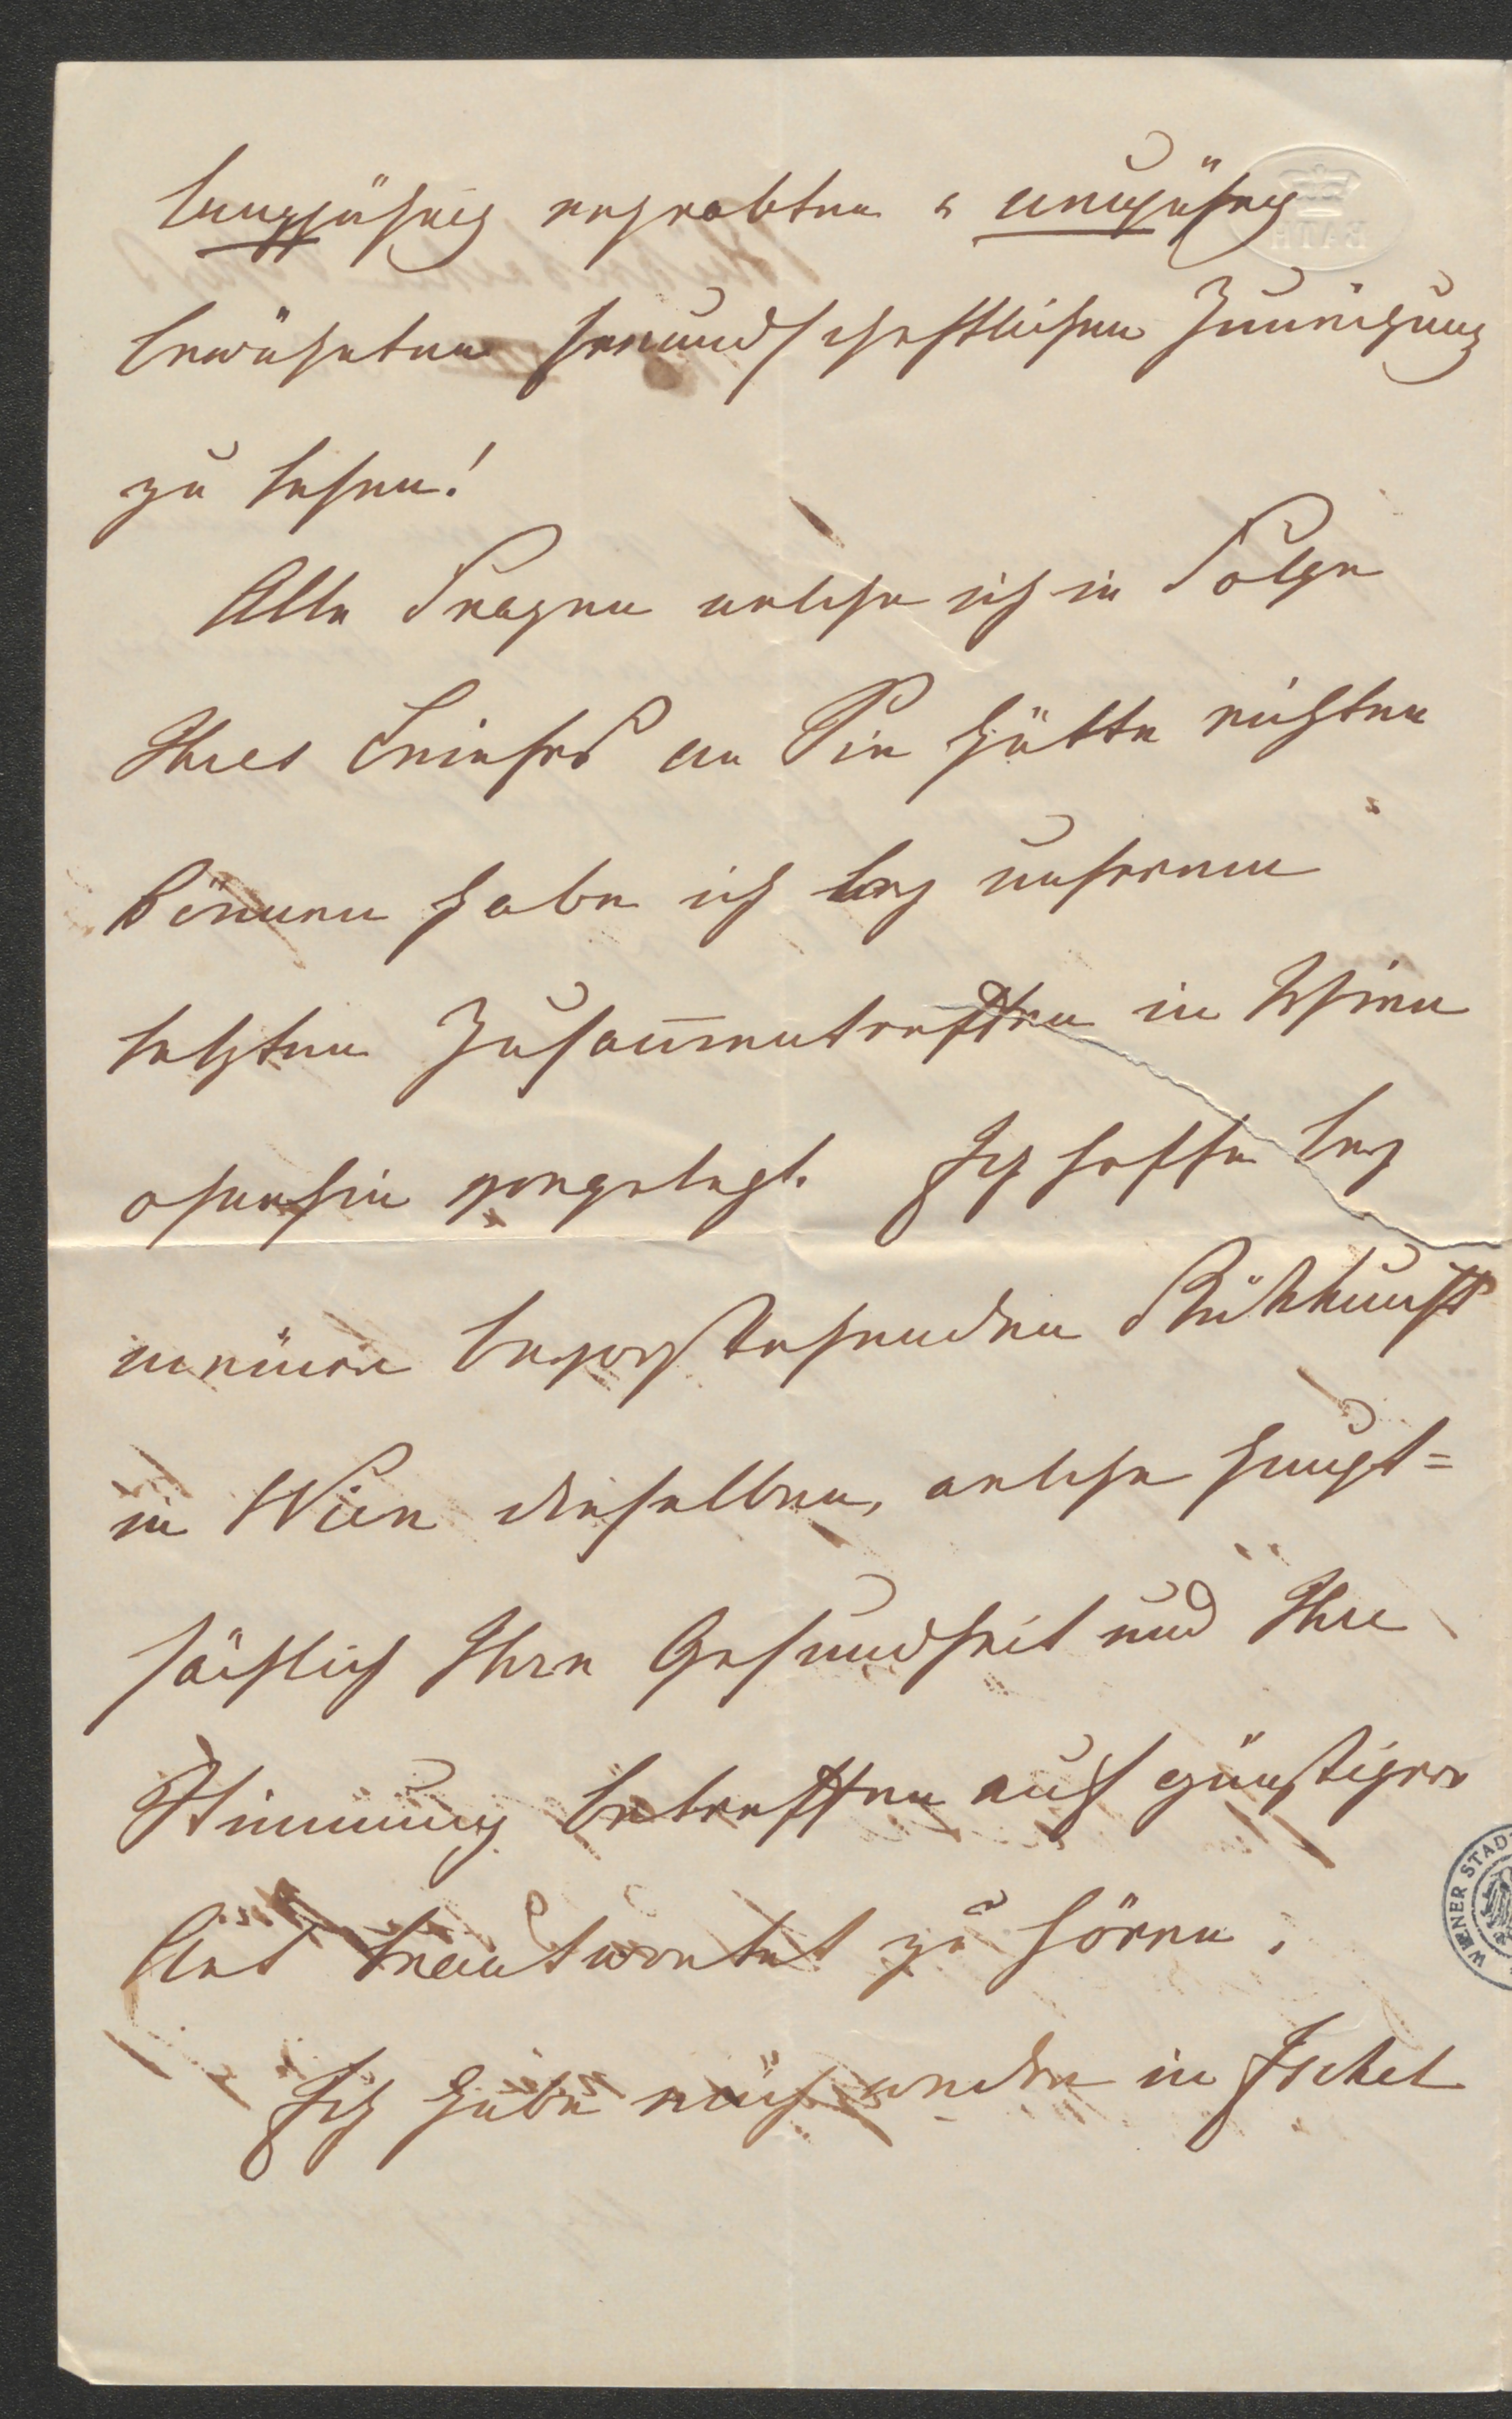 langjährig erprobten & neujährig
bewährten freundschaftlichen Zuneigung
zu lesen!
Alle Fragen welche ich in Folge
Ihres Briefes an Sie hätte richten
können habe ich bey unserem
letzten Zusammentreffen in Wien
ohnehin vorgelegt. Ich hoffe bey
meiner bevorstehenden Rückkunft
in Wien dieselben, welche haupt=
sächlich Ihre Gesundheit und Ihre
Stimmung betreffen auf günstigere
Art beantwortet zu hören.
Ich habe mich weder in Ischel
BATH
WIENER STAD